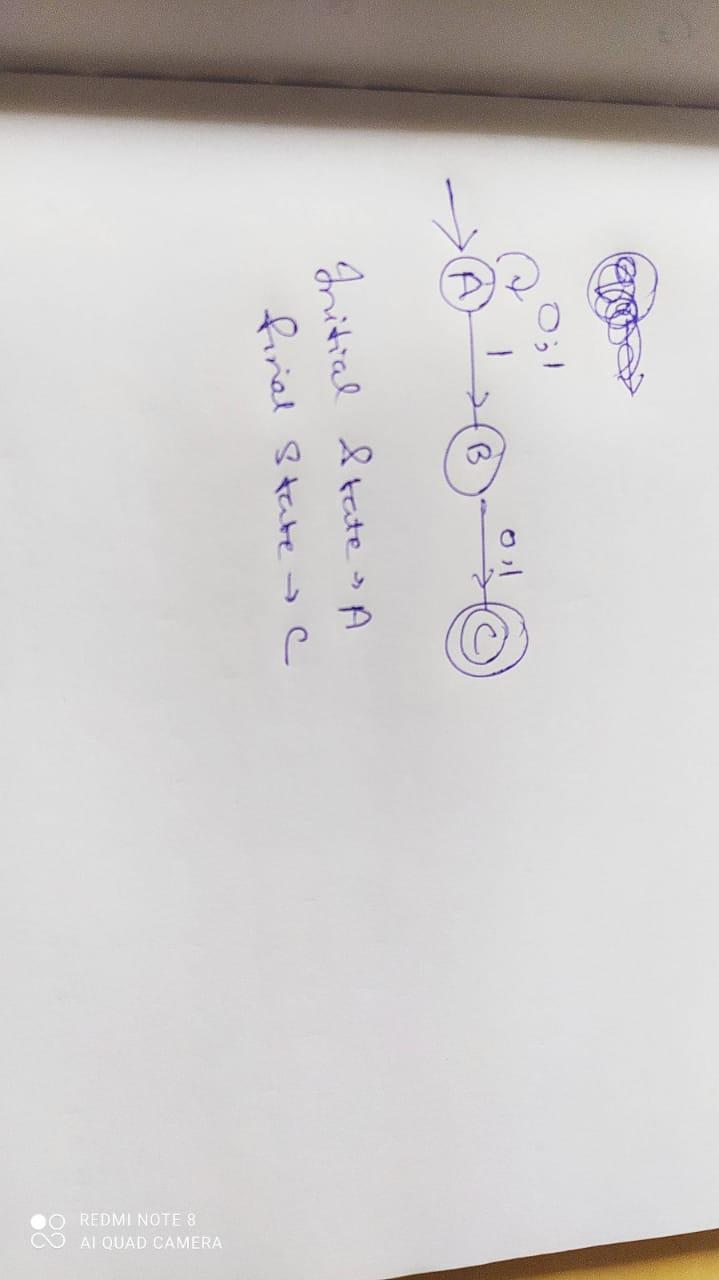 0,1
A 1 B 0,1 C
Initial State → A
final State → C
REDMI NOTE 8
AI QUAD CAMERA